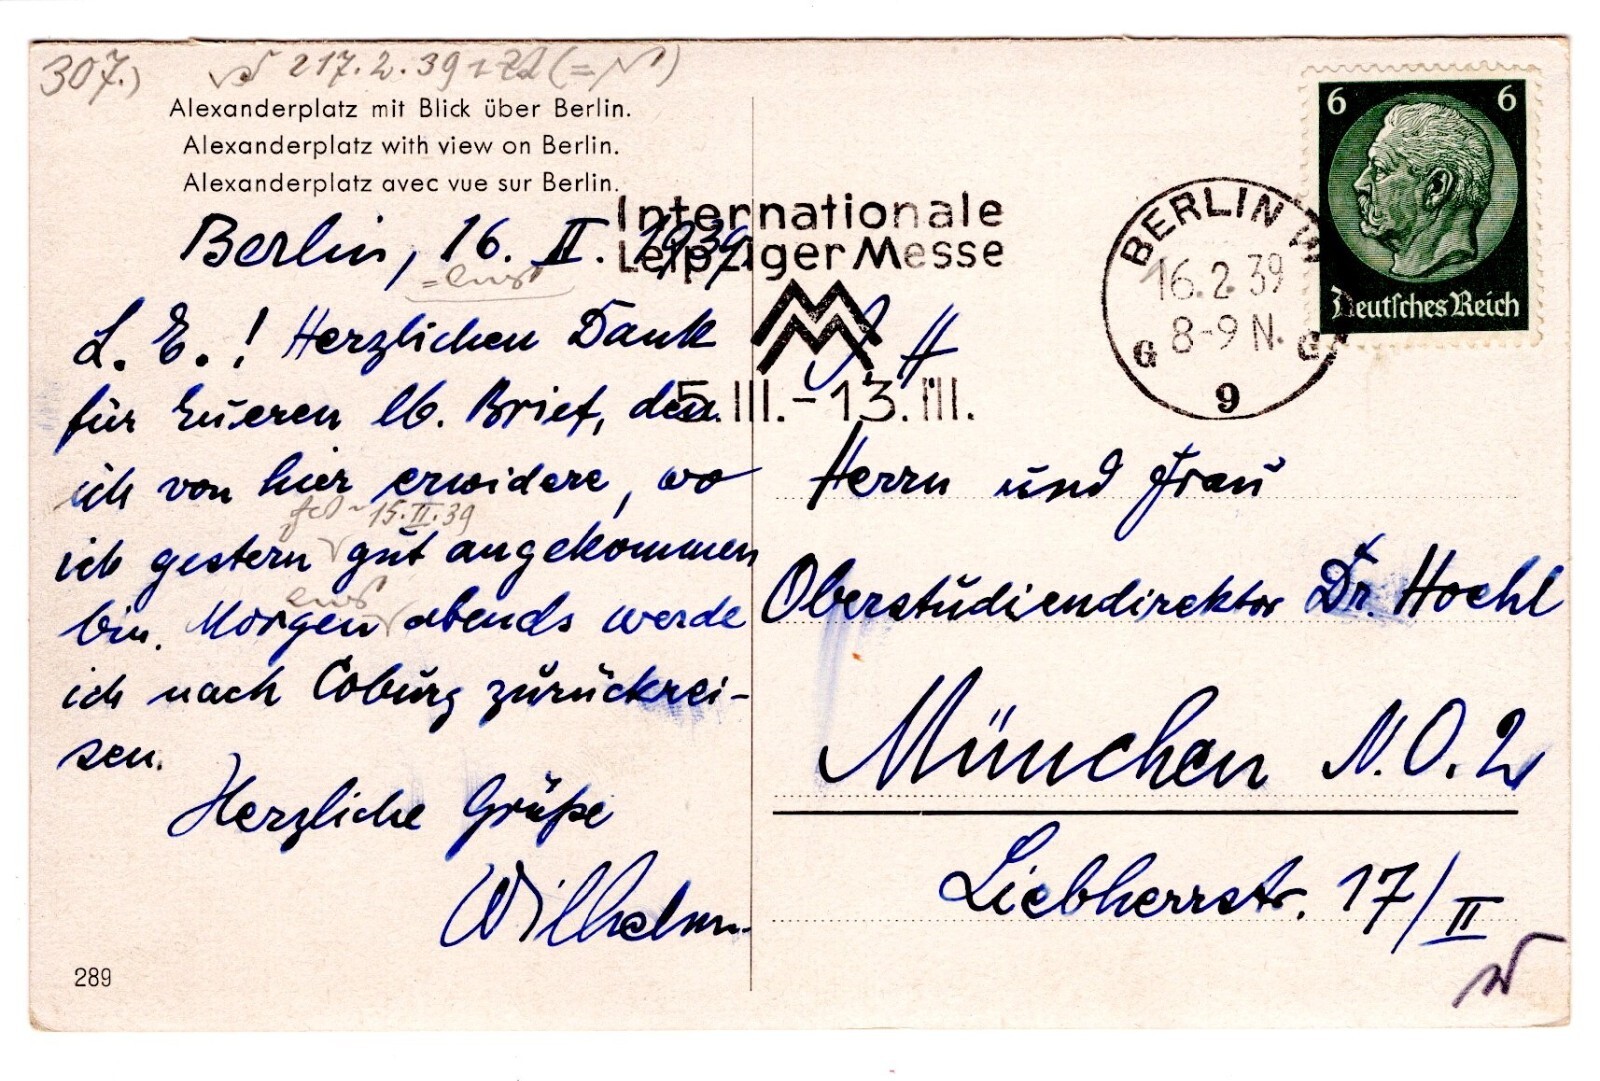 307.)
217.2.39
Alexanderplatz mit Blick über Berlin.
Alexanderplatz with view on Berlin.
Alexanderplatz avec vue sur Berlin.
Berlin, 16. II. 1939.
L. E.! Herzlichen Dank
für Eueren lb. Brief, den
ich von hier erwidere, wo
15.II.39
ich gestern gut angekommen
bin. Morgen abends werde
ich nach Coburg zurückrei-
sen.
Herzliche Grüße
Wilhelm
289
Internationale
Leipziger Messe
MM
5.III.-13.III.
BERLIN W
16.2.39
8-9 N.
G G
9
6 6
Deutsches Reich
Herrn und Frau
Oberstudiendirektor Dr. Hoehl
München N.O.2
Liebherrstr. 17/II